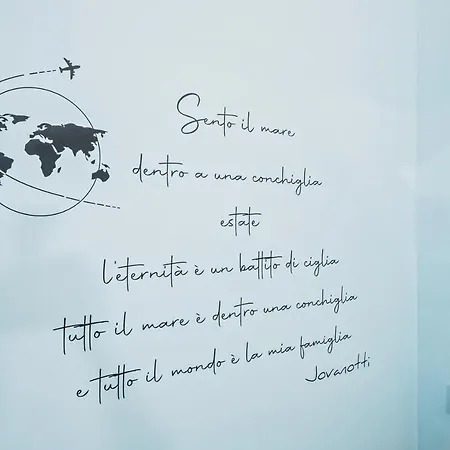 Sento il mare
dentro a una conchiglia
estate
l'eternità è un battito di ciglia
tutto il mare è dentro una conchiglia
e tutto il mondo è la mia famiglia
Jovanotti